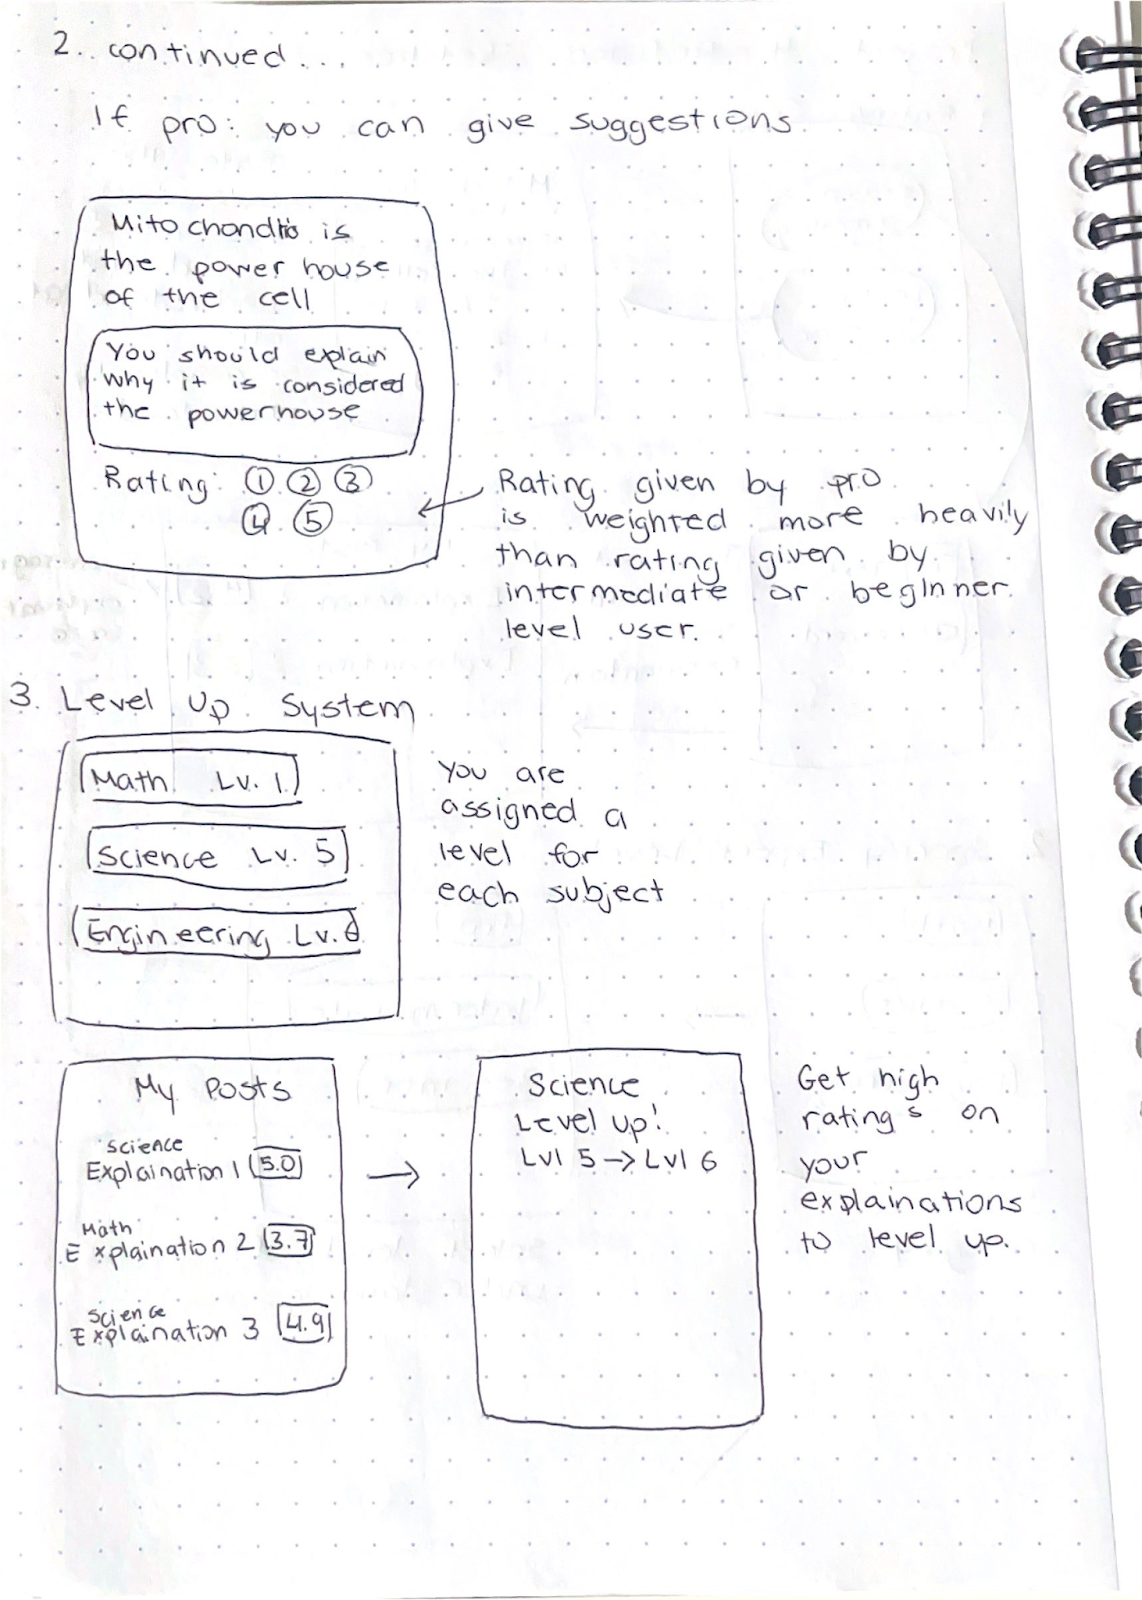 2. continued...
If pro: you can give suggestions
Mitochondria is
the power house
of the cell
You should explain
why it is considered
the powerhouse
Rating: 1 2 3
4 5
Rating given by pro
is weighted more heavily
than rating given by
intermediate or beginner
level user.
3. Level Up System
Math Lv. 1
Science Lv. 5
Engineering Lv.
You are
assigned a
level for
each subject
My Posts
Science
Explaination 1 5.0
Math
Explaination 2 3.7
Science
Explaination 3 4.9
→
Science
Level up!
Lvl 5 → Lvl 6
Get high
ratings on
your
explainations
to level up.